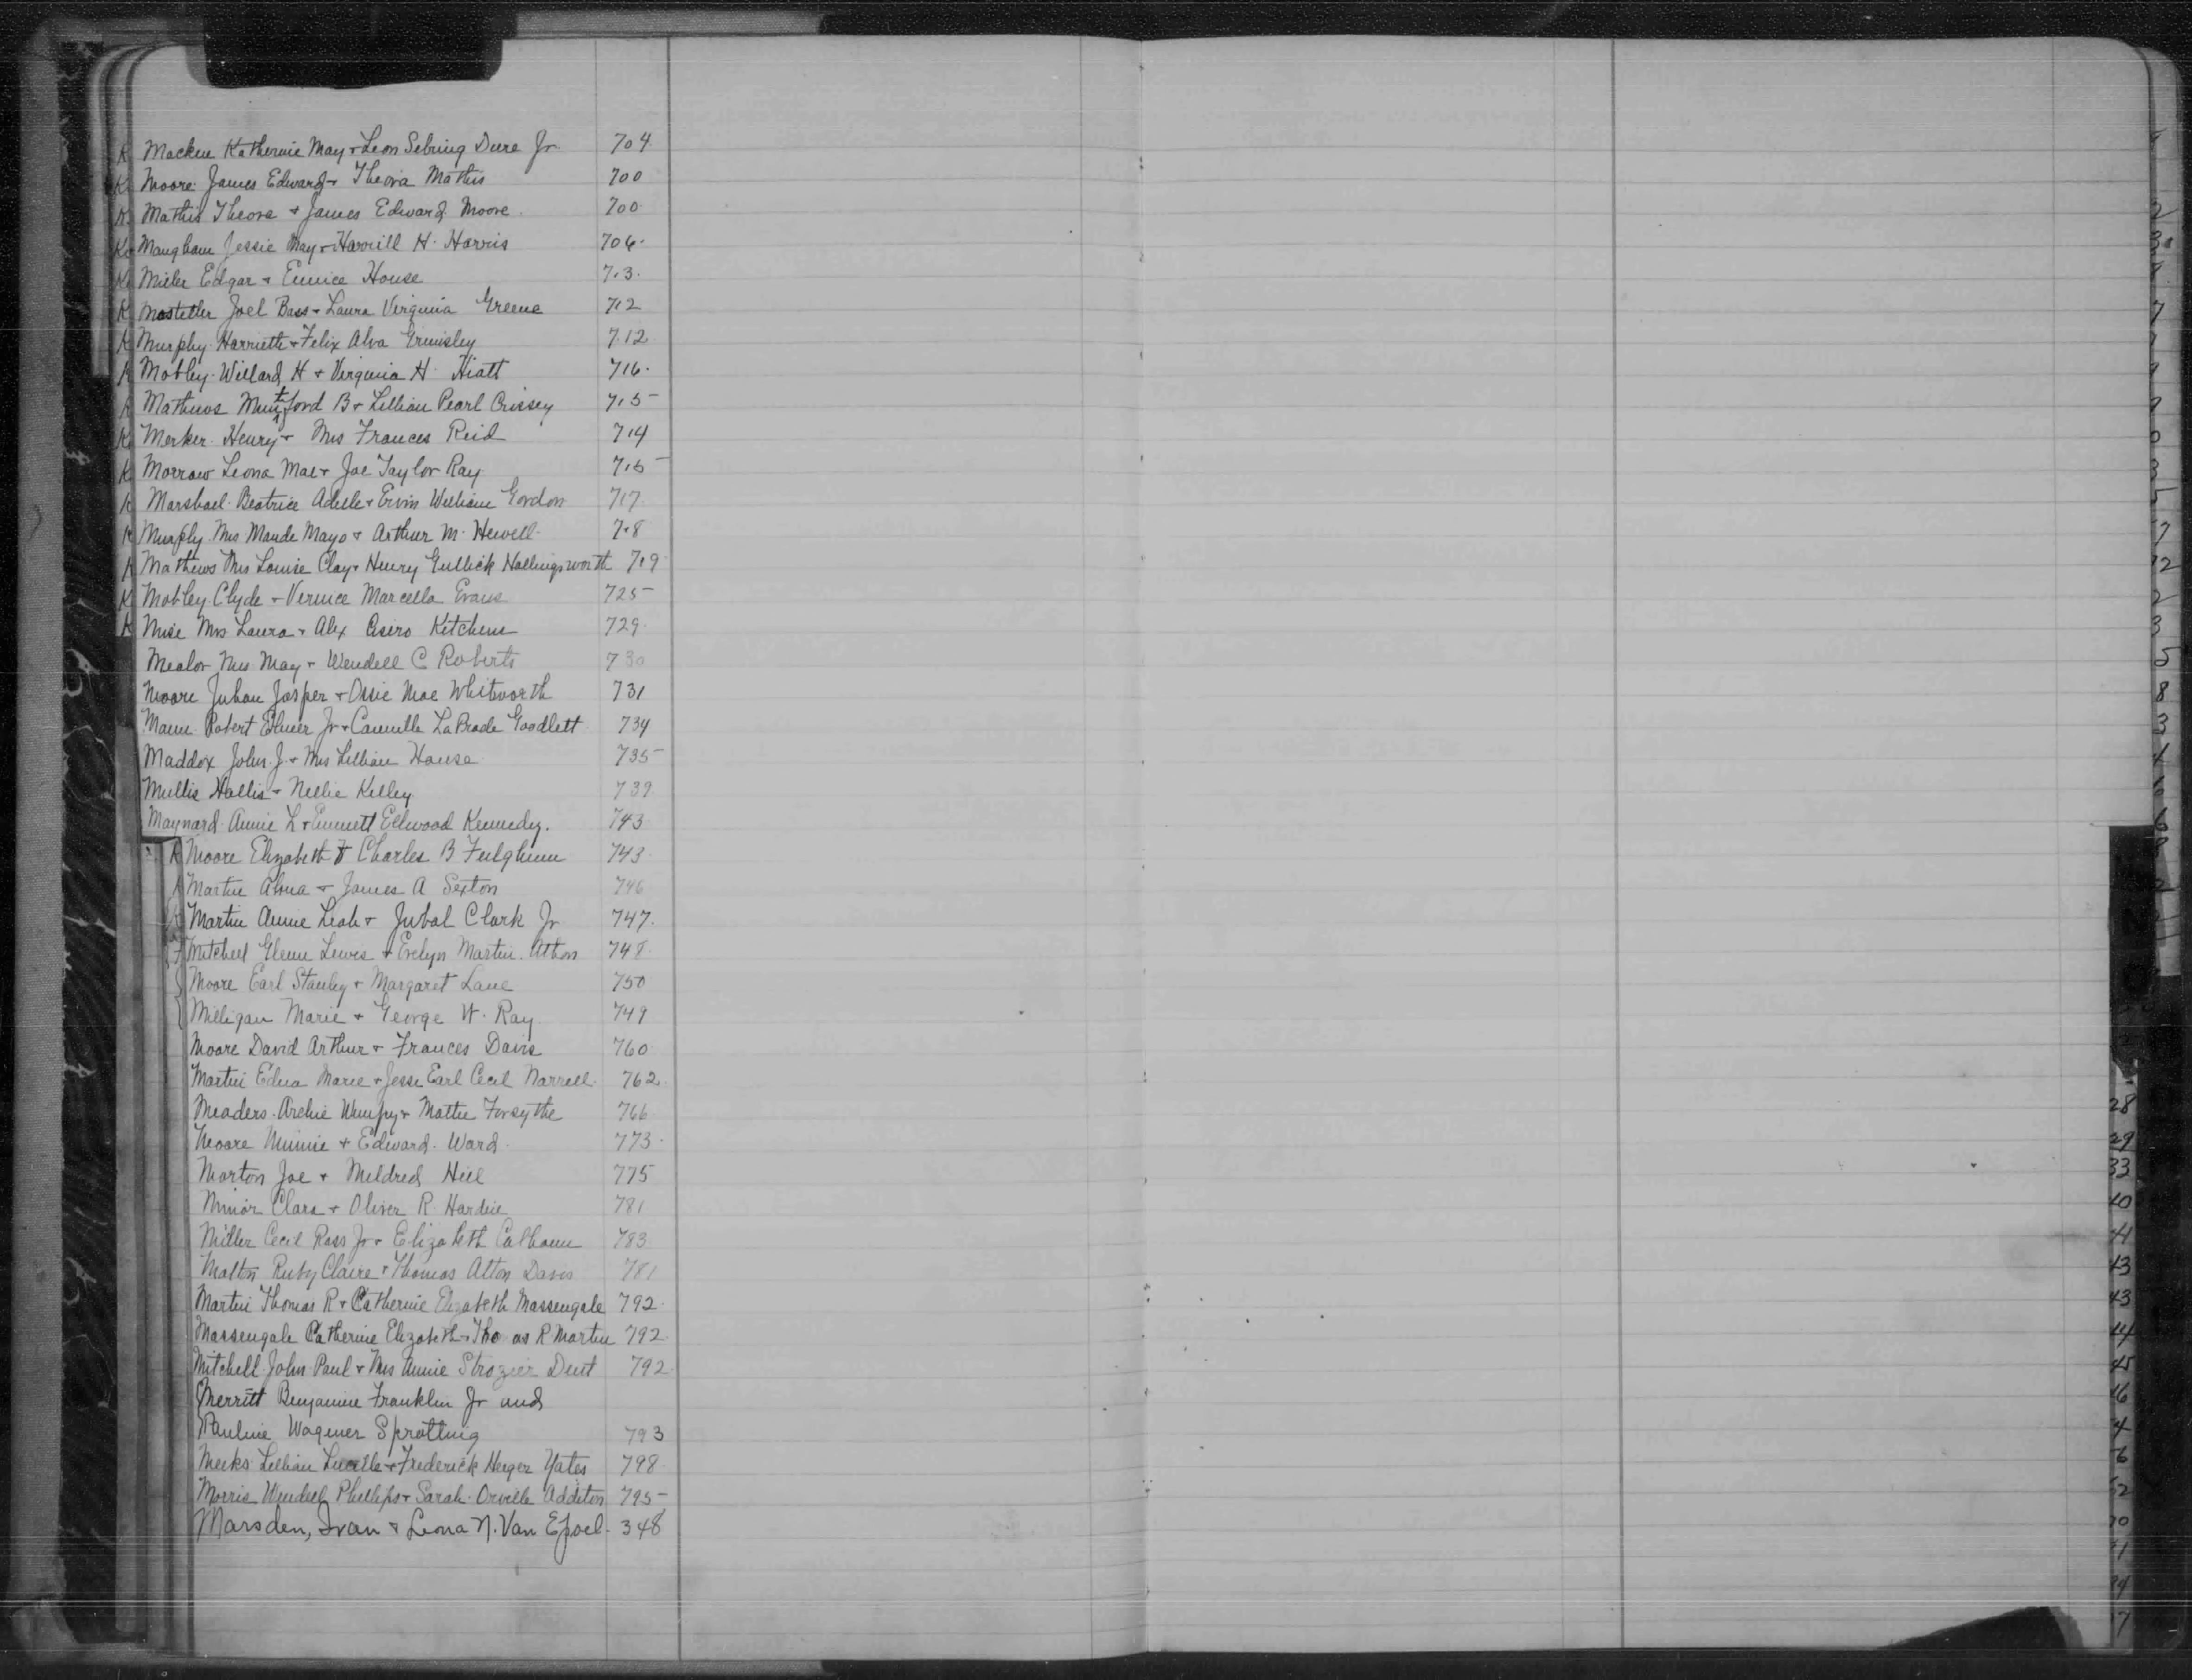 Mackue Katherine May & Leon Sebring Dure Jr 704
Moore James Edward & Theora Mathis 700
Mathis Theora & James Edward Moore 700
Maugham Jessie May & Harrill H. Harris 706
Miller Edgar & Eunice House 713
Mostetler Joel Bass & Laura Virginia Greene 712
Murphy Harriette & Felix Alva Grimsley 712
Mobley Willard H & Virginia H. Hiatt 716
Mathews Muntford B & Lillian Pearl Crissey 715
Merker Henry & Mrs Frances Reid 714
Morrow Leona Mae & Joe Taylor Ray 715
Marshall Beatrice Adelle & Ervin William Gordon 717
Murphy Mrs Maude Mays & Arthur M. Hewell 718
Mathews Mrs Louise Clay & Henry Gullick Hollingsworth 719
Mobley Clyde & Vernice Marcella Evans 725
Mise Mrs Laura & Alex Cisero Kitchens 729
Mealor Mrs May & Wendell C Roberts 730
Moore Juhan Jasper & Ossie Mae Whitworth 731
Mann Robert Elmer Jr & Camille LaPrade Goodlett 734
Maddox John J. & Mrs Lillian House 735
Mullis Hollis & Nellie Kelley 739
Maynard Annie L & Emmett Ellwood Kennedy. 743
K Moore Elizabeth & Charles B Fulghum 743
Martin Alma & James A Sexton 746
Martin Annie Leah & Jubal Clark Jr 747.
Mitchell Glenn Lewis & Evelyn Martin Athon 748
Moore Earl Stanley & Margaret Lane 750
Milligan Marie & George W. Ray 749
Moore David Arthur & Frances Davis 760
Martin Edna Marie & Jesse Earl Cecil Harrell 762
Meaders Archie Wimpy & Mattie Forsythe 766
Moore Minnie & Edward Ward 773
Morton Joe & Mildred Hill 775
Minor Clara & Oliver R. Hardin 781
Miller Cecil Ross Jr & Elizabeth Calhoun 783
Malton Ruby Claire & Thomas Alton Davis 781
Martin Thomas R & Catherine Elizabeth Massengale 792
Massengale Catherine Elizabeth & Tho as R Martin 792
Mitchell John Paul & Mrs Annie Strozier Dent 792
Merritt Benjamine Franklin Jr and
Pauline Wagener Spratling 793
Meeks Lillian Lucille & Frederick Heeger Yates 798
Morris Wendell Phillips & Sarah Orville Additon 795
Marsden, Ivan & Leona N. Van Epoel 348